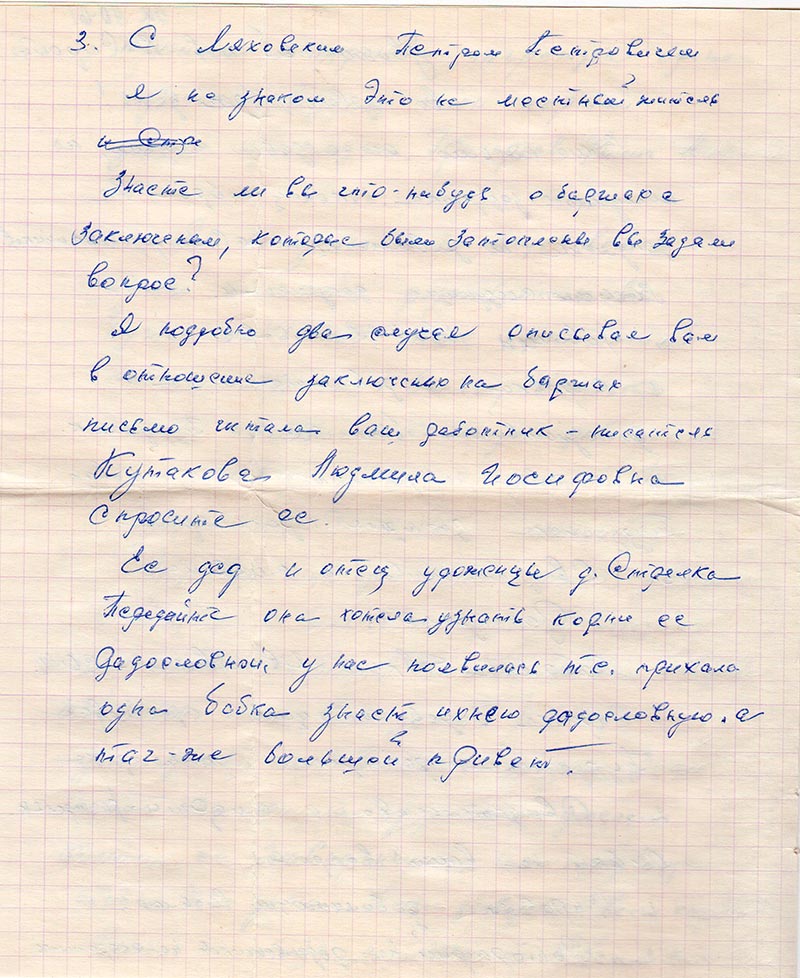 3. С Ляховским Петром Петровичем
я не знаком Это не местный житель
Знаете ли вы что-нибудь о баржах а
заключеным, которые были затоплены вы задали
вопрос?
Я подробно два случая описывал вам
в отношение заключеных на баржах
письмо читала ваш работник - писатель
Кутакова Людмила Иосифовна
Спросите ее.
Ее дед и отец уроженцы д. Стрелка
Передайте она хотела узнать корни ее
радословной, у нас появилась т.е. приехала
одна бабка знает ихнею радословную. а
так-же большой привет.